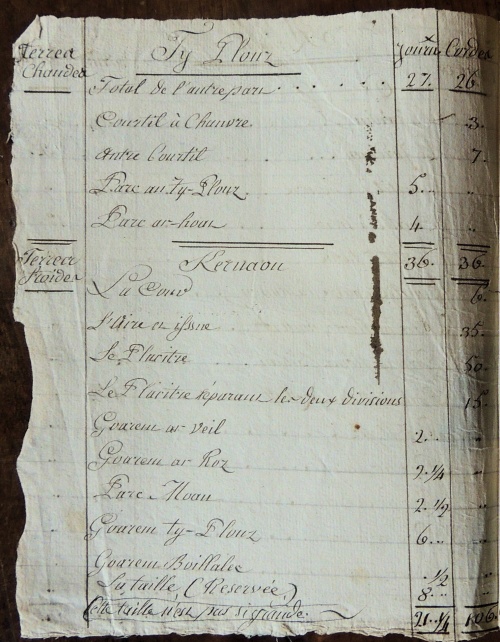 Terres Chaudes
Ty Plouz
Journx Cordes
Total de l'autre part 27. 26
Courtil à Chanvre 3.
Autre Courtil 7.
Parc an Ty-Plouz. 5.
Parc ar-hoat 4.
36. 36.
Terres froides
Kernaou
La Cour 6.
L'aire et issue 35.
Le Placitre 50.
Le Placitre séparant les deux divisions 15.
Gourem ar veil 2.
Gourem ar Roz 2. 1/4
Parc Moan 2. 1/2
Gourem ty-Plouz 6.
Gourem Boillalec 1/2
La taille (Reservée) 8.
Cette taille n'est pas si grande. 21. 1/4 106.